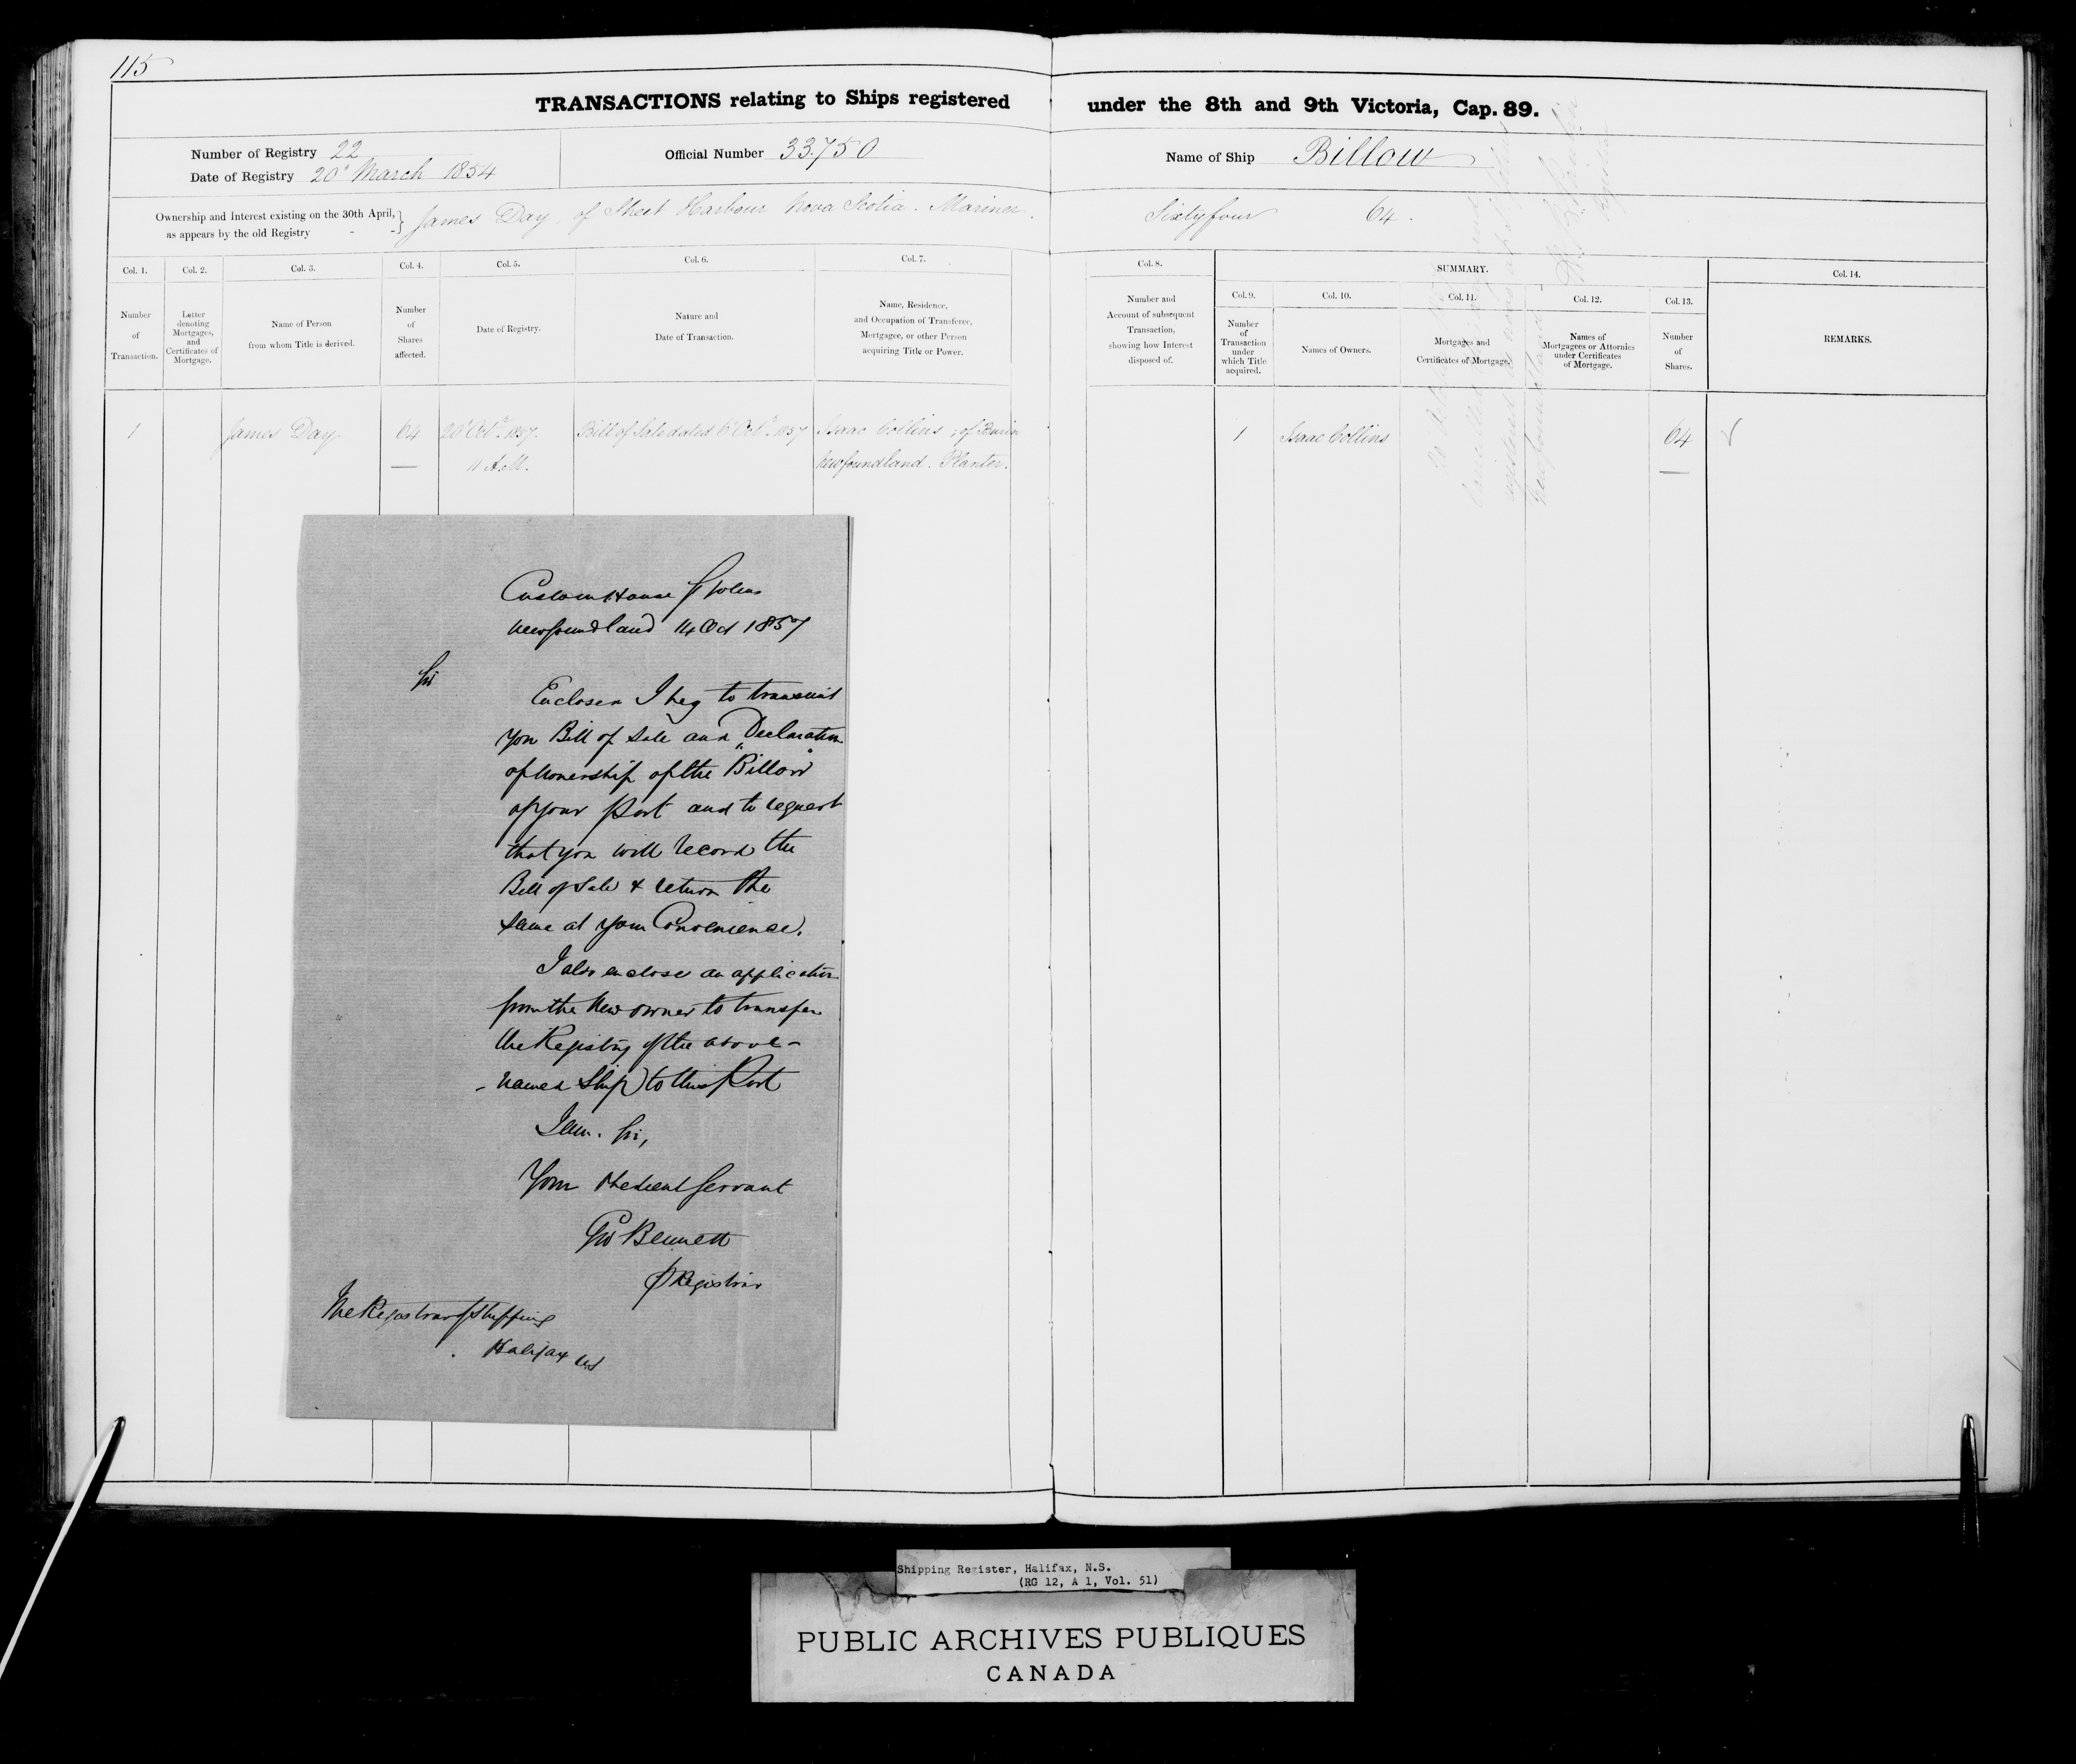 115
TRANSACTIONS relating to Ships registered under the 8th and 9th Victoria, Cap. 89.
Number of Registry 22
Date of Registry 20th March 1854
Official Number 33.750
Name of Ship Billow
Ownership and Interest existing on the 30th April,
as appears by the old Registry
James Day, of Sheet Harbour Nova Scotia. Mariner. Sixty four 64.
Col. 1.
Number
of
Transaction.
Col. 2.
Letter
denoting
Mortgages,
and
Certificates of
Mortgage.
Col. 3.
Name of Person
from whom Title is derived.
Col. 4.
Number
of
Shares
affected.
Col. 5.
Date of Registry.
Col. 6.
Nature and
Date of Transaction.
Col. 7.
Name, Residence,
and Occupation of Transferee,
Mortgagee, or other Person
acquiring Title or Power.
Col. 8.
Number and
Account of subsequent
Transaction,
showing how Interest
disposed of.
SUMMARY.
Col. 9.
Number
of
Transaction
under
which Title
acquired.
Col. 10.
Names of Owners.
Col. 11.
Mortgages and
Certificates of Mortgage.
Col. 12.
Names of
Mortgagees or Attornies
under Certificates
of Mortgage.
Col. 13.
Number
of
Shares.
Col. 14.
REMARKS.
1 James Day. 64 20th Octr. 1857. Bill of Sale dated 6th Octr. 1857 Isaac Collins, of Burin 1 Isaac Collins 64
11 A.M. Newfoundland. Planter.
Custom House St Johns
Newfoundland 14 Oct 1857
Sir
Enclosed I beg to transmit
you Bill of Sale and Declaration
of Ownership of the "Billow"
of your Port and to request
that you will record the
Bill of Sale & return the
same at your Convenience.
I also enclose an application
from the new owner to transfer
the Registry of the above-
-named Ship to this Port
I am. Sir,
Your Obedient Servant
Geo Bennett
Registrar
The Registrar of Shipping
Halifax NS
Shipping Register, Halifax, N.S.
(RG 12, A 1, Vol. 51)
PUBLIC ARCHIVES PUBLIQUES
CANADA